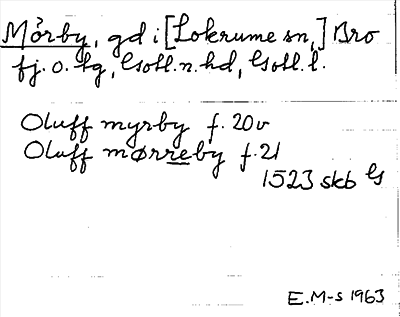 Mörby, gd i [Lokrume sn,] Bro
fj. o. tg, Gotl. n. hd, Gotl. l.
Oluff myrby f. 20v
Oluff mørreby f. 21
1523 skb G
E.M-s 1963